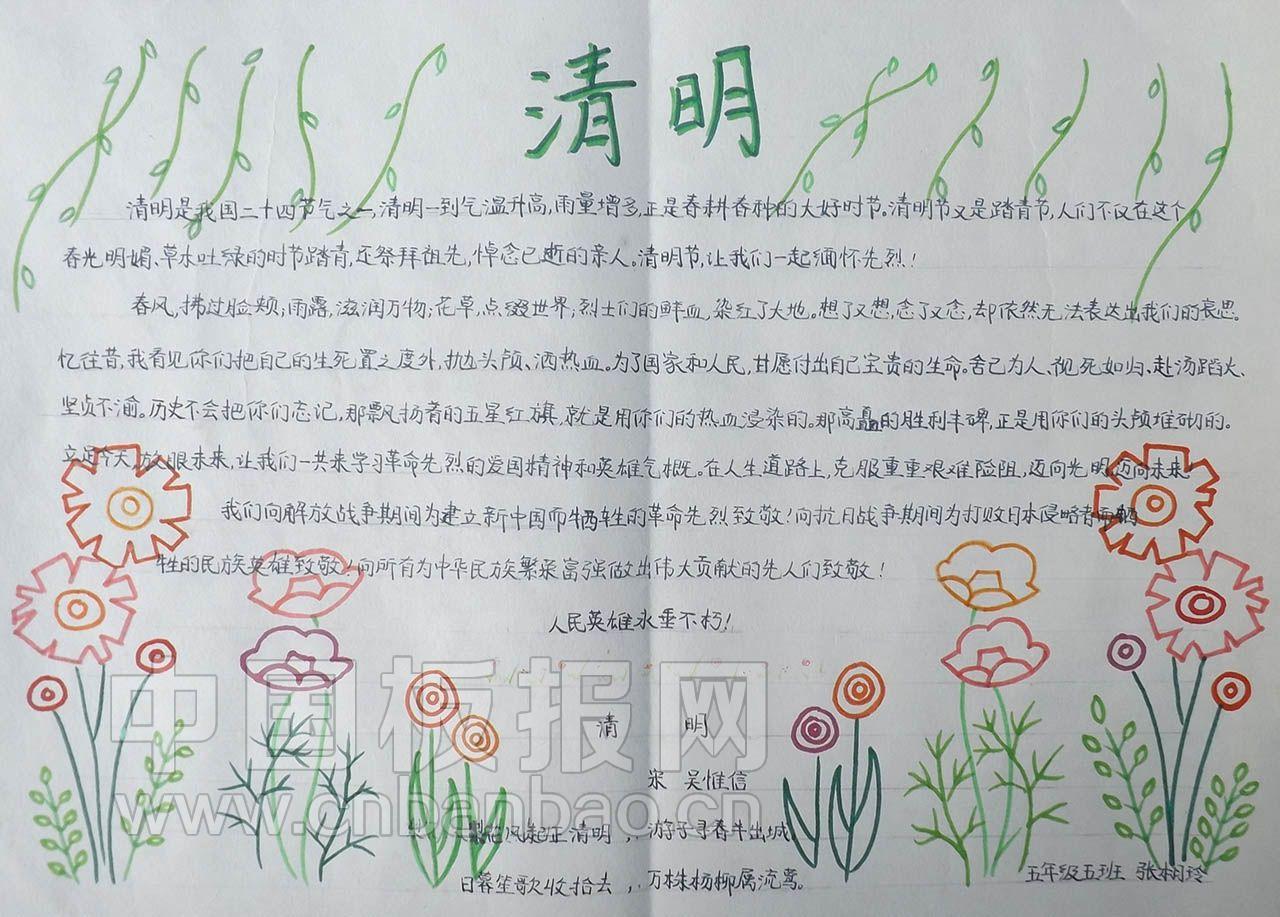 清明
清明是我国二十四节气之一,清明一到气温升高,雨量增多,正是春耕春种的大好时节。清明节又是踏青节,人们不仅在这个
春光明媚、草木吐绿的时节踏青,还祭拜祖先,悼念已逝的亲人。清明节,让我们一起缅怀先烈!
春风,拂过脸颊;雨露,滋润万物;花草,点缀世界;烈士们的鲜血,染红了大地。想了又想,念了又念,却依然无法表达出我们的哀思。
忆往昔,我看见你们把自己的生死置之度外,抛头颅、洒热血。为了国家和人民,甘愿付出自己宝贵的生命。舍己为人、视死如归、赴汤蹈火、
坚贞不渝。历史不会把你们忘记,那飘扬着的五星红旗,就是用你们的热血浸染的。那高矗的胜利丰碑,正是用你们的头颅堆砌的。
立足今天,放眼未来,让我们一共来学习革命先烈的爱国精神和英雄气概。在人生道路上,克服重重艰难险阻,迈向光明,迈向未来!
我们向解放战争期间为建立新中国而牺牲的革命先烈致敬!向抗日战争期间为打败日本侵略者而牺
牲的民族英雄致敬!向所有为中华民族繁荣富强做出伟大贡献的先人们致敬!
人民英雄永垂不朽!
清 明
宋 吴惟信
梨花风起正清明,游子寻春半出城
日暮笙歌收拾去,万株杨柳属流莺。
五年级五班 张栩玲
中国板报网
www.cnbanbao.cn